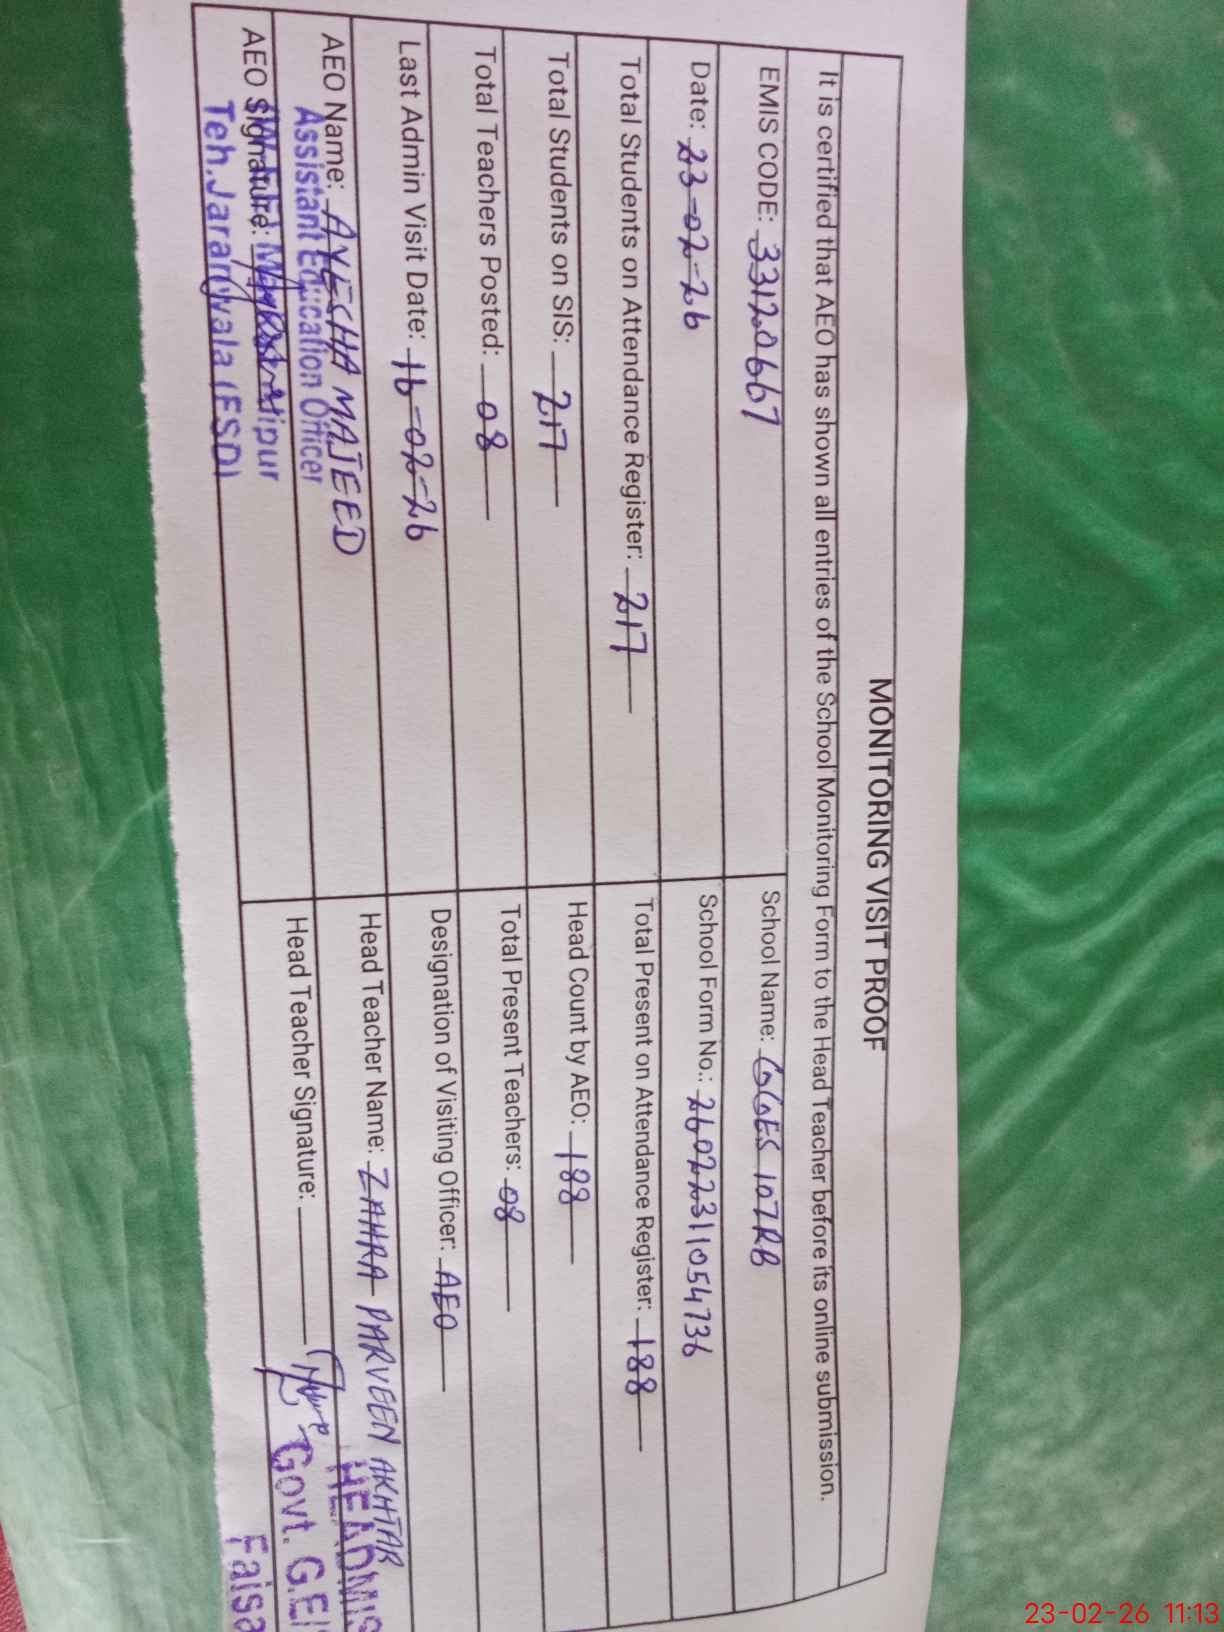 MONITORING VISIT PROOF
It is certified that AEO has shown all entries of the School Monitoring Form to the Head Teacher before its online submission.
EMIS CODE: 33120667
School Name: GGES 107RB
Date: 23-02-26
School Form No.: 26022311054736
Total Students on Attendance Register: 217
Total Present on Attendance Register: 188
Total Students on SIS: 217
Head Count by AEO: 188
Total Teachers Posted: 08
Total Present Teachers: 08
Last Admin Visit Date: 16-02-26
Designation of Visiting Officer: AEO
AEO Name: AYESHA MAJEED
Head Teacher Name: ZAHRA PARVEEN AKHTAR
Assistant Education Officer
HEADMIS
AEO Signature:
Head Teacher Signature:
Govt. G.E
Teh.Jaranwala (FSD)
Faisa
23-02-26 11:13